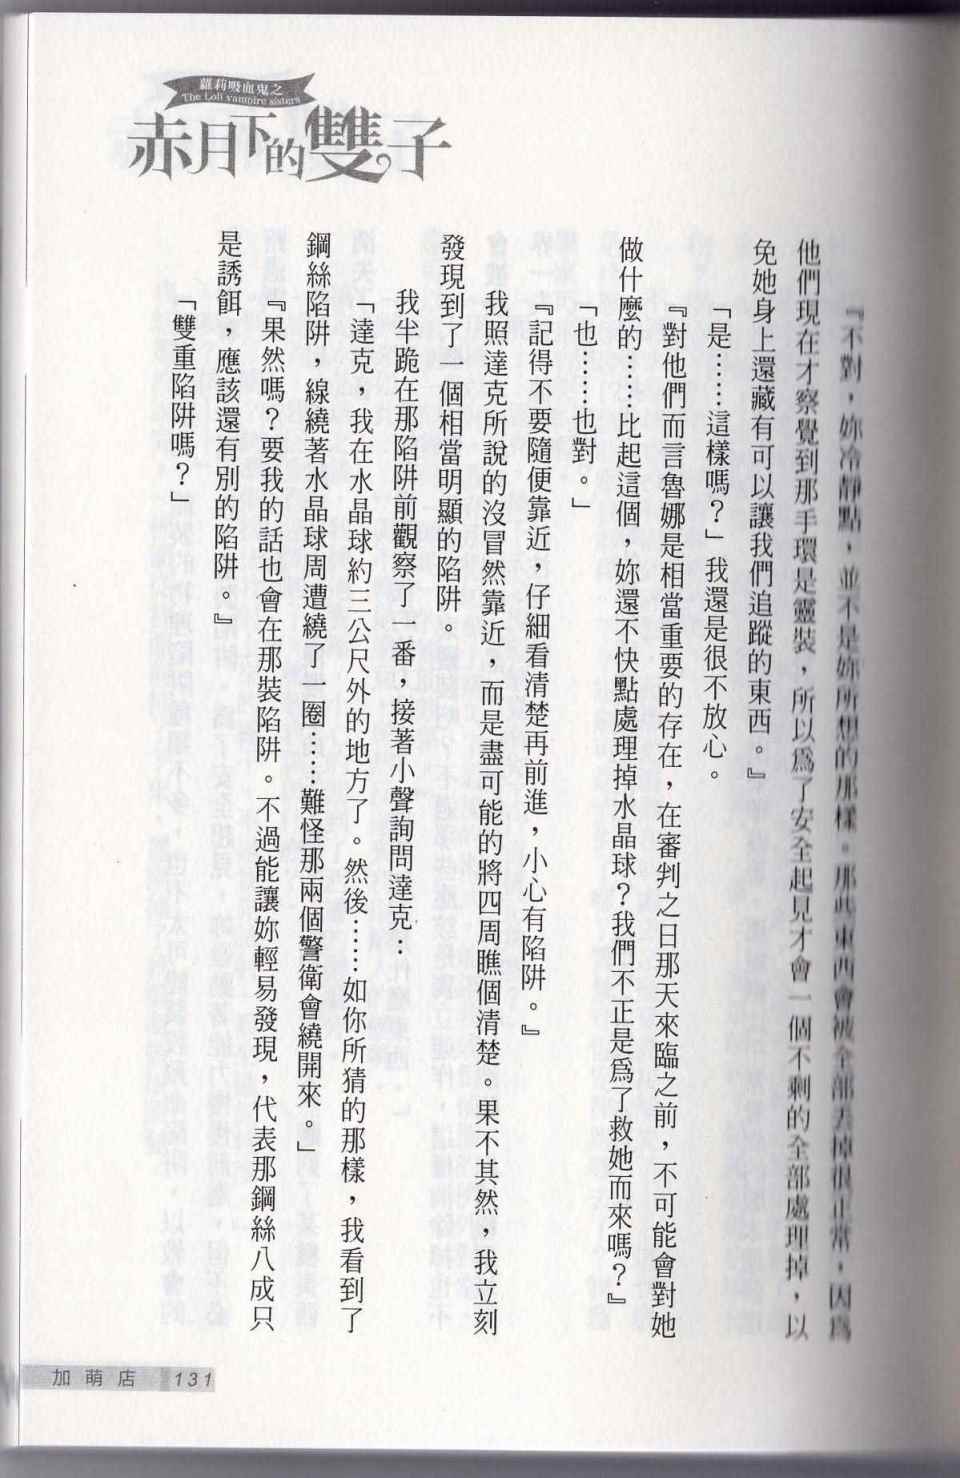 蘿莉吸血鬼之
The Loli vampire sisters
赤月下的雙子
『不對，妳冷靜點，並不是妳所想的那樣。那些東西會被全部丟掉很正常，因為
他們現在才察覺到那手環是靈裝，所以為了安全起見才會一個不剩的全部處理掉，以
免她身上還藏有可以讓我們追蹤的東西。』
「是……這樣嗎？」我還是很不放心。
『對他們而言魯娜是相當重要的存在，在審判之日那天來臨之前，不可能會對她
做什麼的……比起這個，妳還不快點處理掉水晶球？我們不正是為了救她而來嗎？』
「也……也對。」
『記得不要隨便靠近，仔細看清楚再前進，小心有陷阱。』
我照達克所說的沒冒然靠近，而是盡可能的將四周瞧個清楚。果不其然，我立刻
發現到了一個相當明顯的陷阱。
我半跪在那陷阱前觀察了一番，接著小聲詢問達克：
「達克，我在水晶球約三公尺外的地方了。然後……如你所猜的那樣，我看到了
鋼絲陷阱，線繞著水晶球周遭繞了一圈……難怪那兩個警衛會繞開來。」
『果然嗎？要我的話也會在那裝陷阱。不過能讓妳輕易發現，代表那鋼絲八成只
是誘餌，應該還有別的陷阱。』
「雙重陷阱嗎？」
加萌店 131